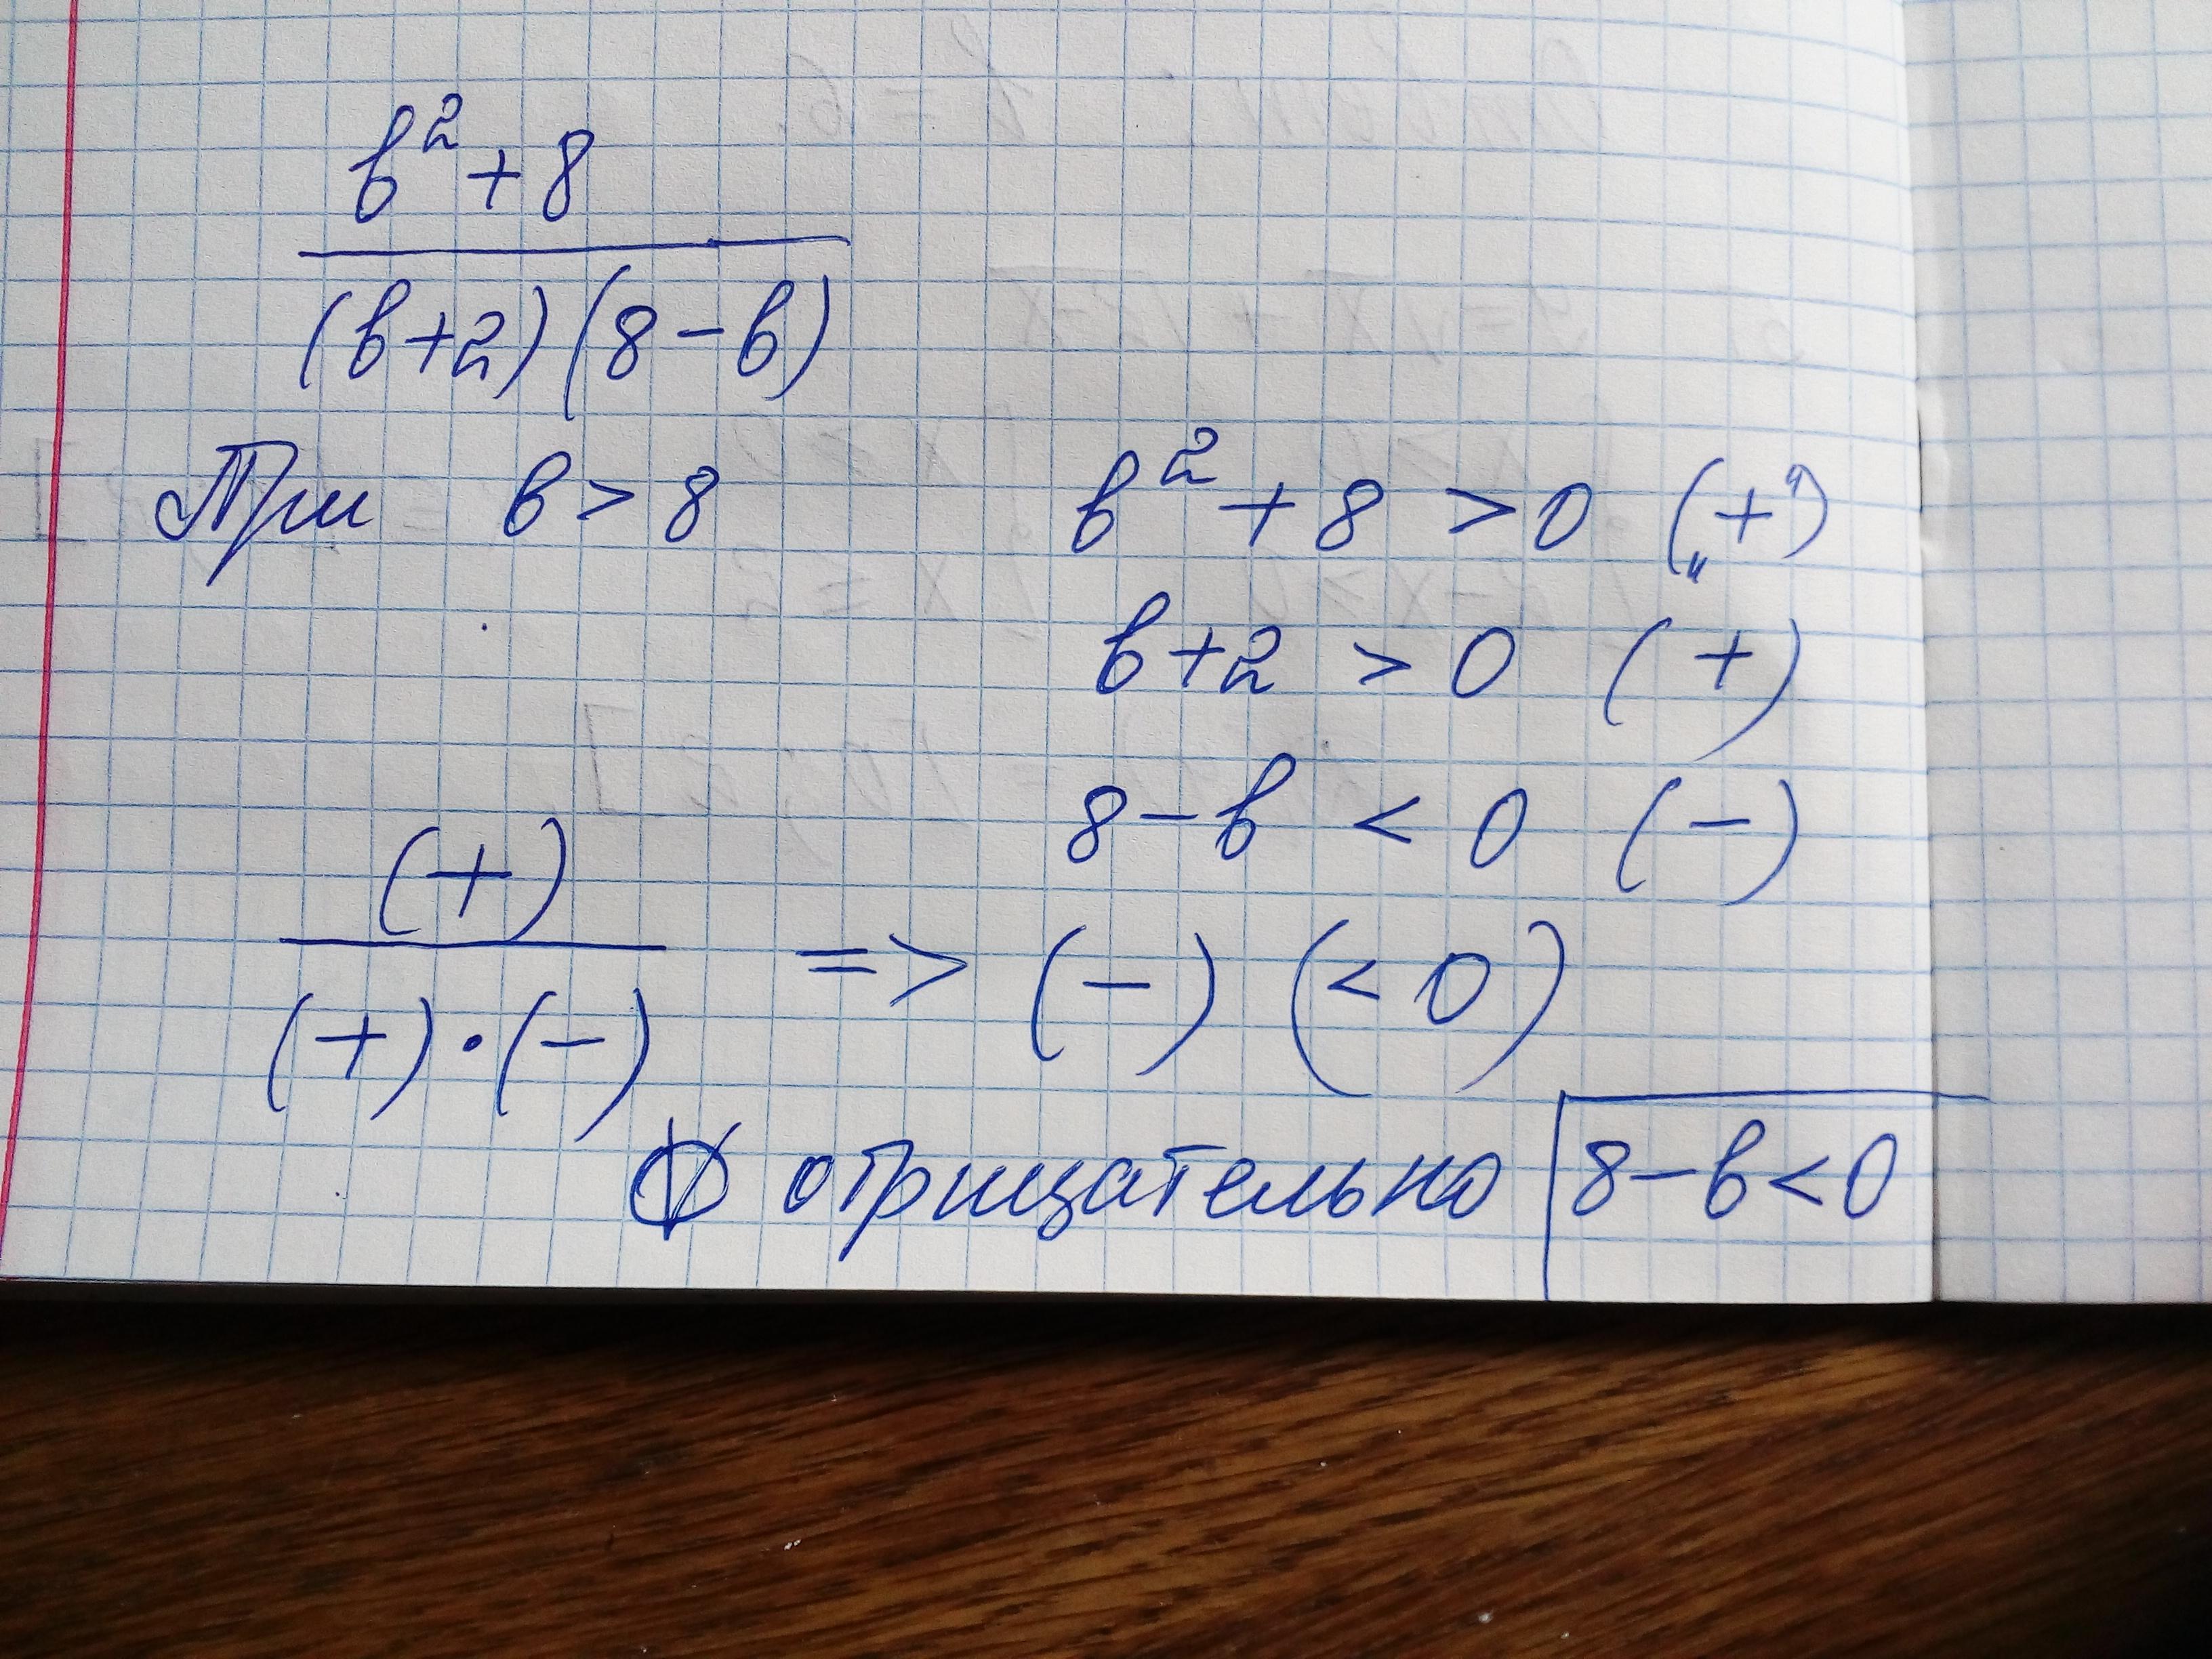 b² + 8
(b+2)(8-b)
При b > 8
b² + 8 > 0 („+")
b+2 > 0 (+)
8-b < 0 (-)
(+)
(+)·(-)
=> (-) (< 0)
отрицательно 8-b<0